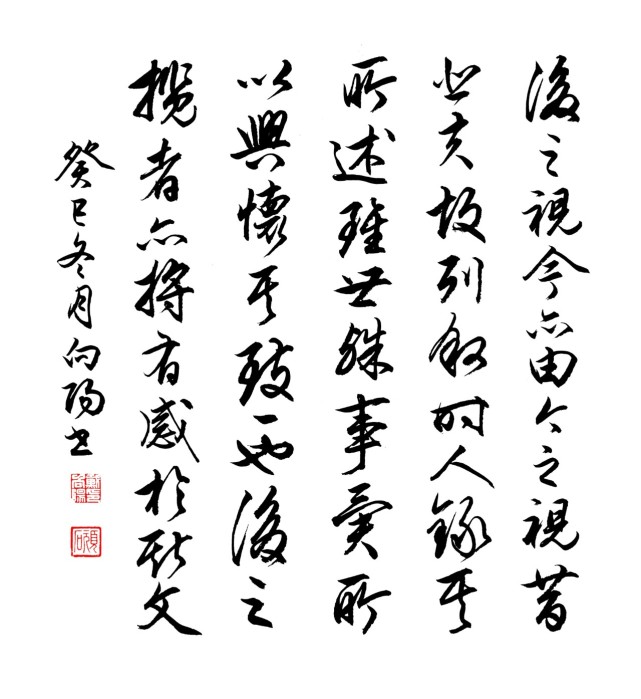 後之視今亦由今之視昔
悲夫故列叙時人錄其
所述雖世殊事異所
以興懷其致一也後之
攬者亦將有感於斯文
癸巳冬月向陽書